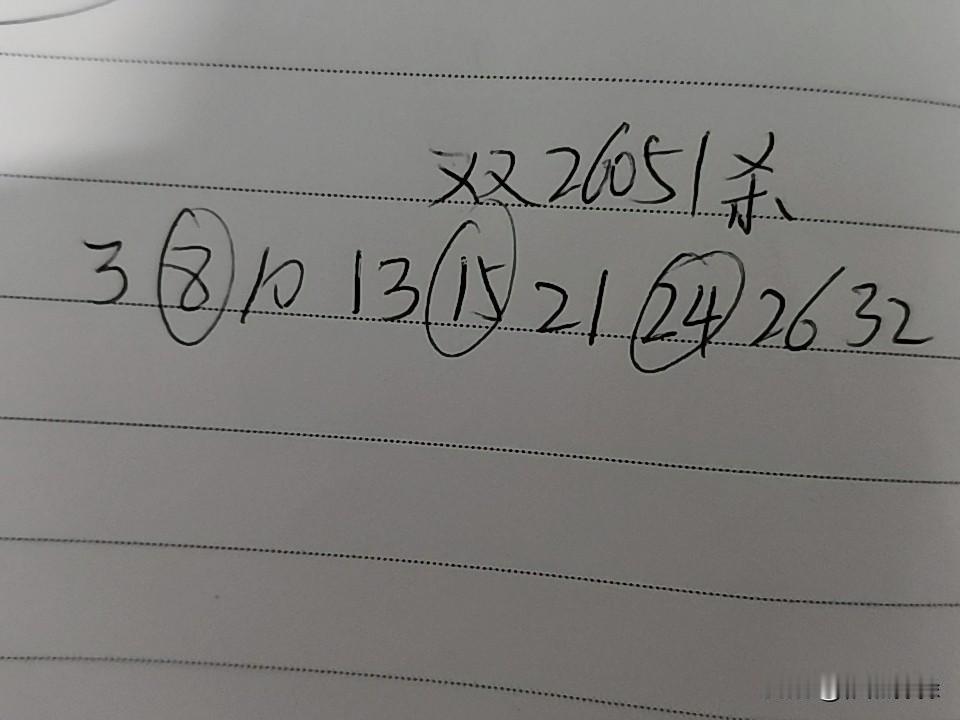 双26051杀
3 8 10 13 15 21 24 26 32